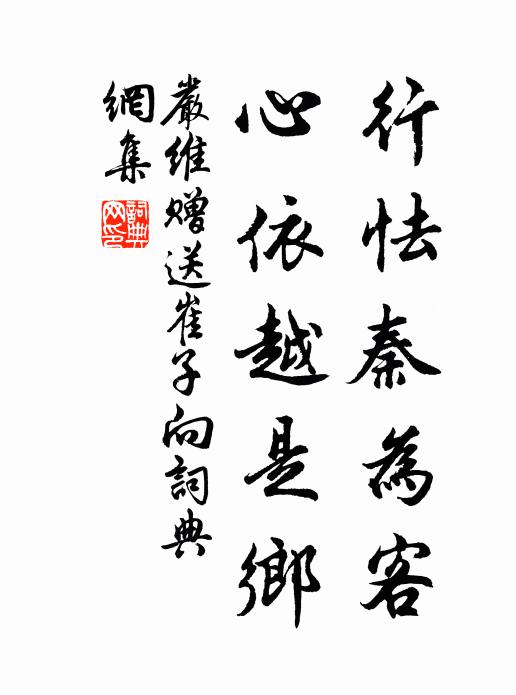 行怯秦為客
心依越是鄉
嚴維贈送崔子向詞典
網集
詞典網印